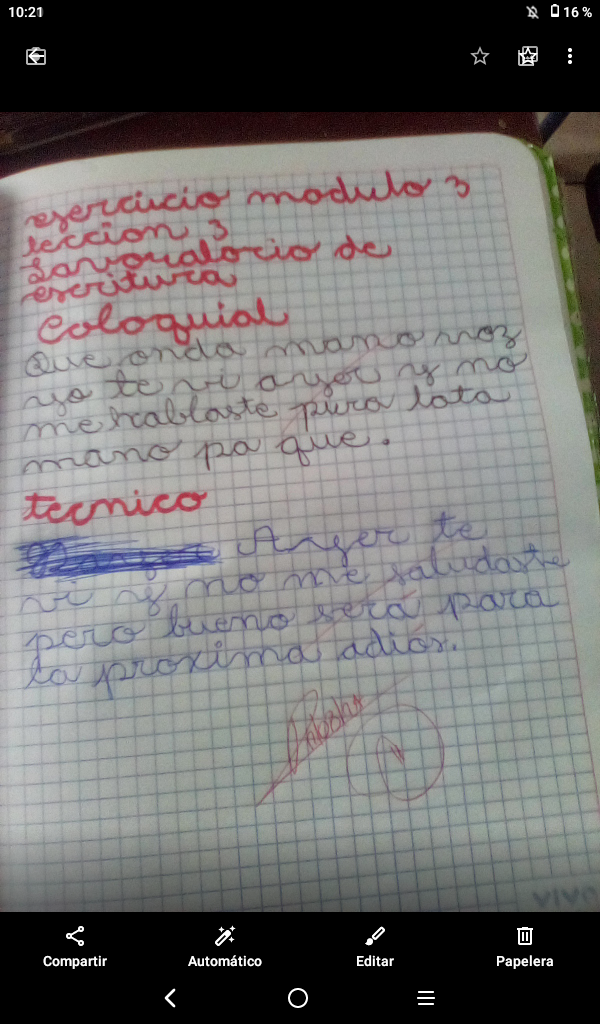 10:21
16 %
ejercicio modulo 3
leccion 3
Lavoratorio de
escritura
Coloquial
Que onda mano voz
yo te vi ayer y no
me hablaste pura lata
mano pa que.
tecnico
Ayer te
vi y no me saludaste
pero bueno será para
la proxima adiós.
VIVO
Compartir
Automático
Editar
Papelera